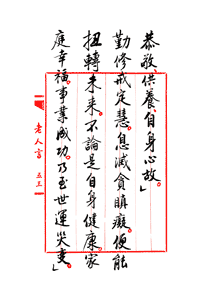 恭敬供養自身心故。」
勤修戒定慧。息滅貪瞋癡。便能
扭轉未來。不論是自身健康。家
庭幸福。事業成功。乃至世運災變。」
老人言 五三